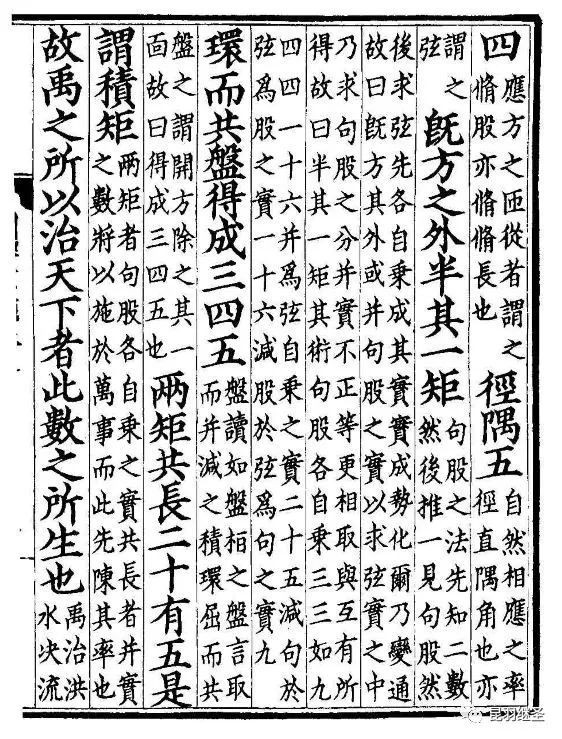 四應方之匝從者謂之脩股亦脩脩長也徑隅五自然相應之率徑直隅角也亦
謂之弦旣方之外半其一矩句股之法先知二數然後推一見句股然
後求弦先各自乘成其實實成勢化爾乃變通
故曰旣方其外或并句股之實以求弦實之中
乃求句股之分并實不正等更相取與互有所
得故曰半其一矩其術句股各自乘三三如九
四四一十六并爲弦自乘之實二十五減句於
弦爲股之實一十六減股於弦爲句之實九
環而共盤得成三四五盤讀如盤桓之盤言取而并減之積環屈而共
盤之謂開方除之其一面故曰得成三四五也兩矩共長二十有五是
謂積矩兩矩者句股各自乘之實共長者并實之數將以施於萬事而此先陳其率也
故禹之所以治天下者此數之所生也禹治洪水決流
昆羽继圣